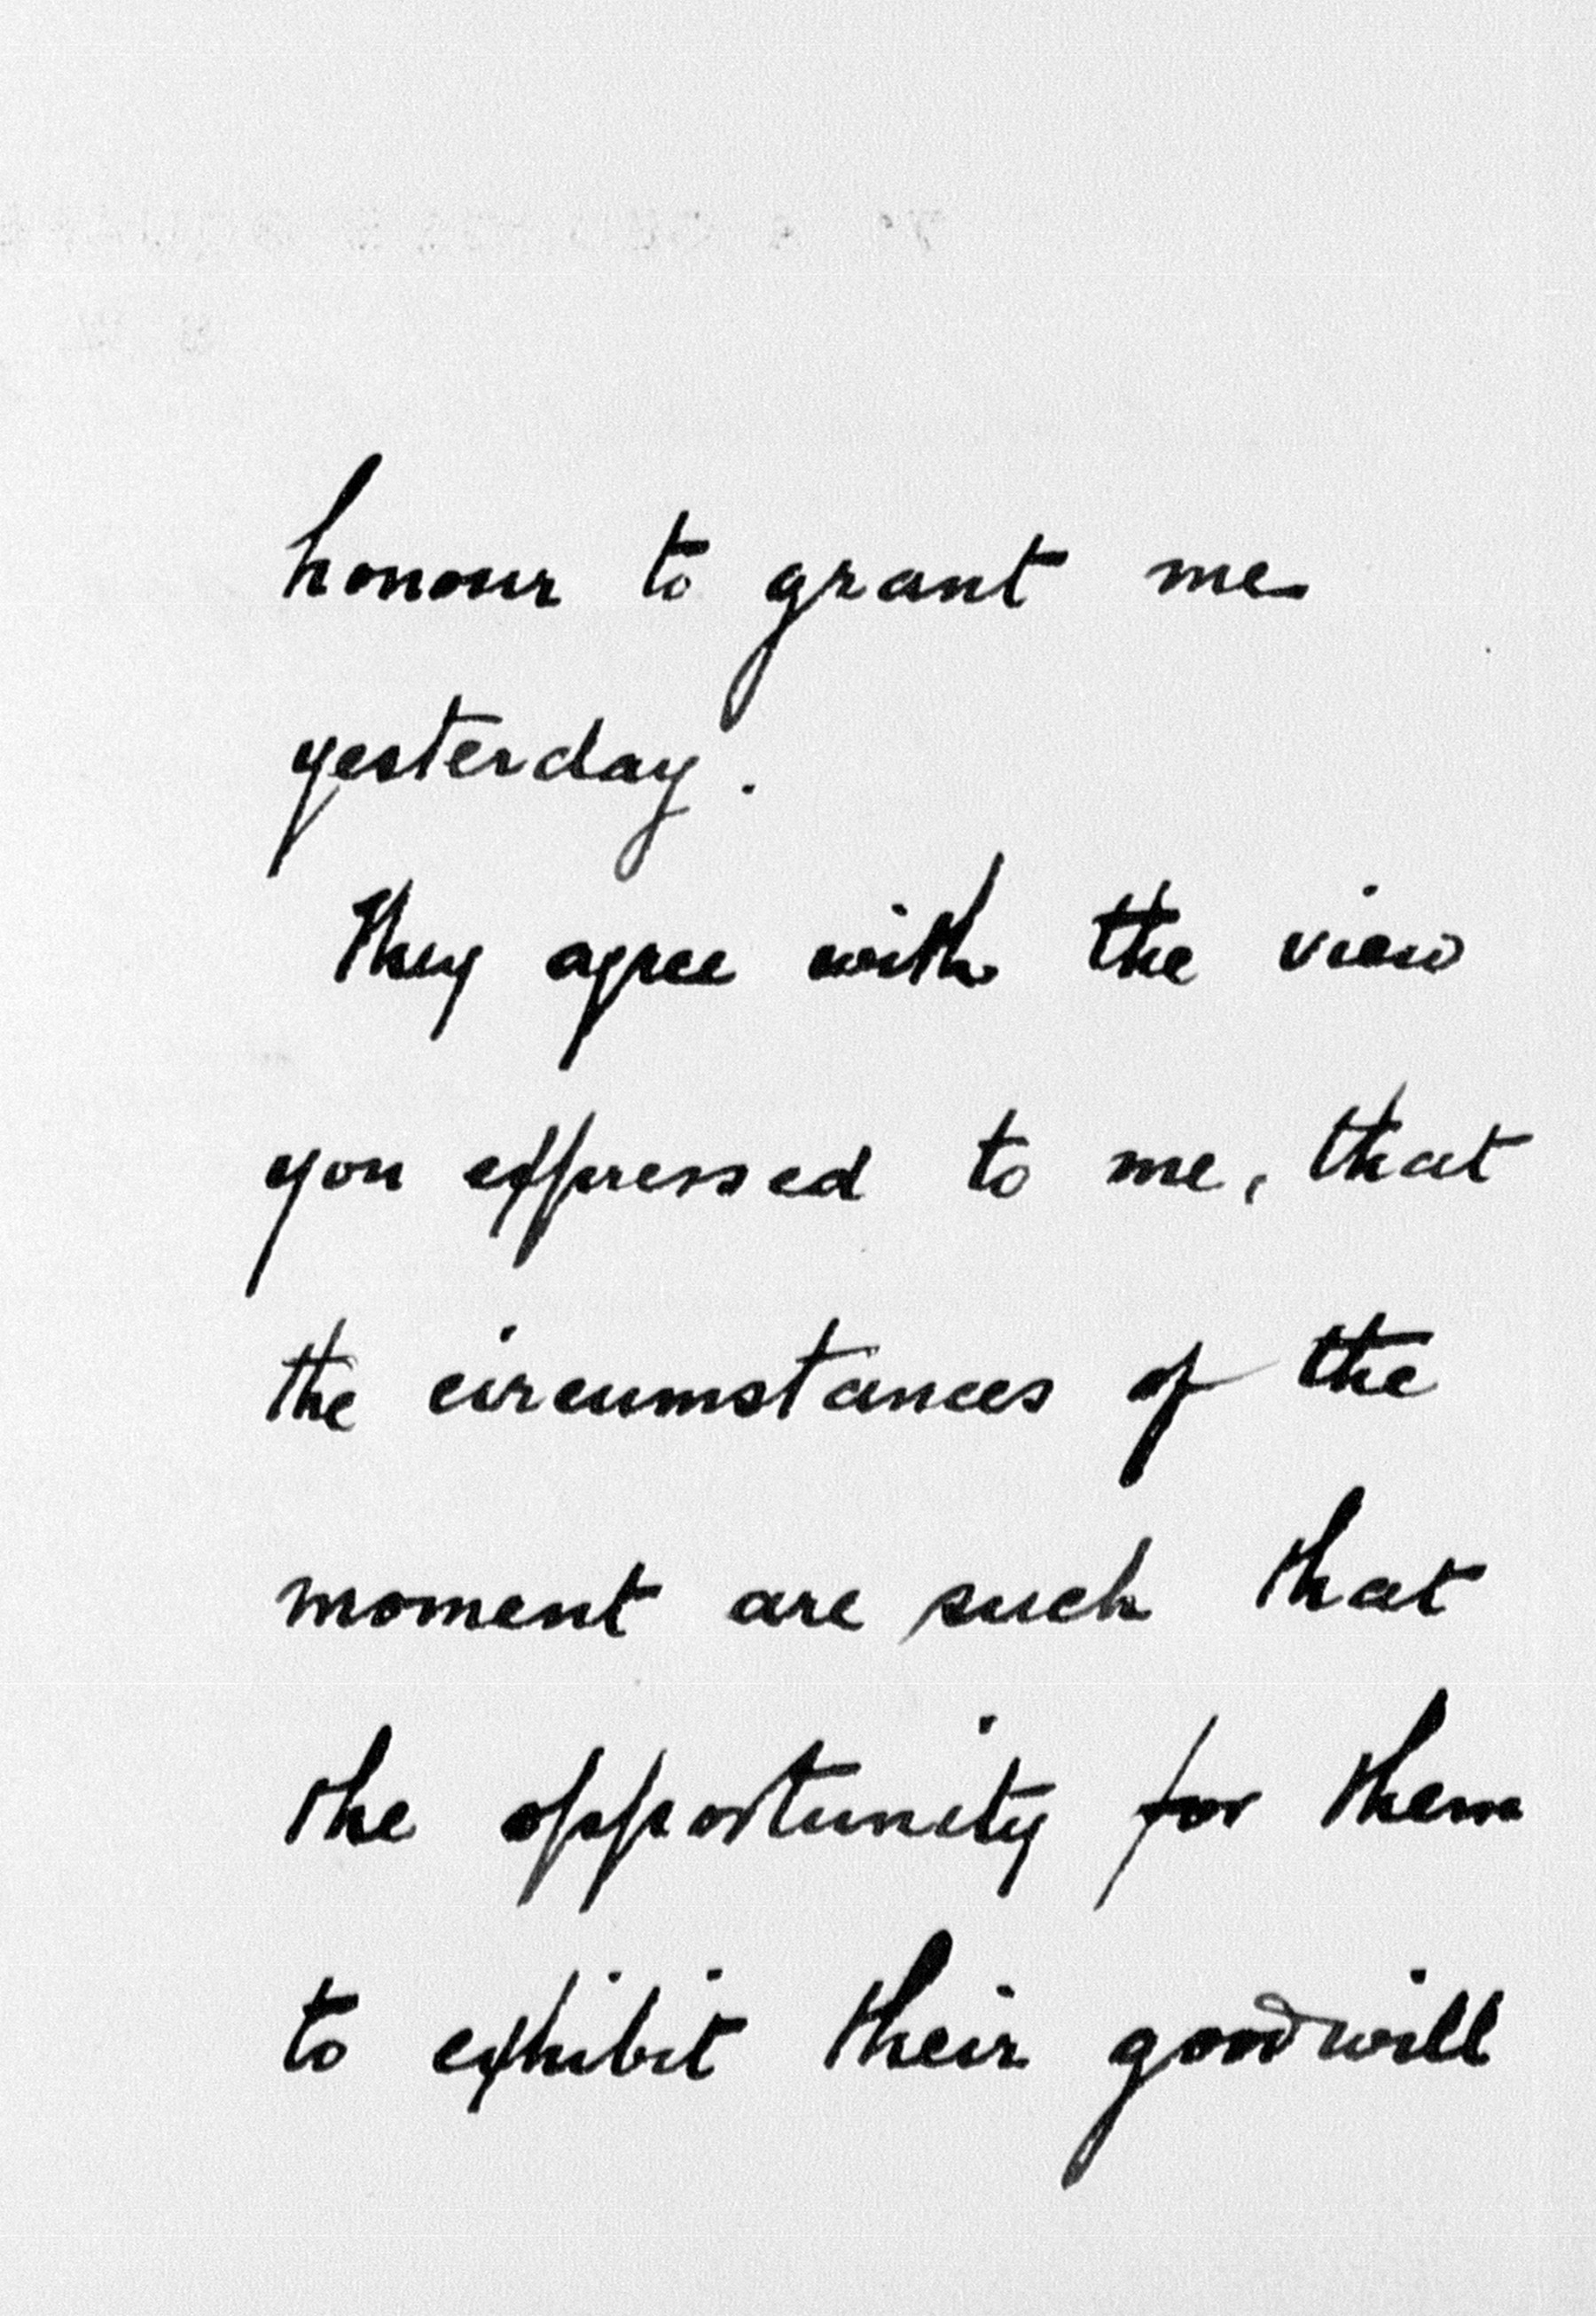 honour to grant me
yesterday.
They agree with the view
you expressed to me, that
the circumstances of the
moment are such that
the opportunity for them
to exhibit their goodwill